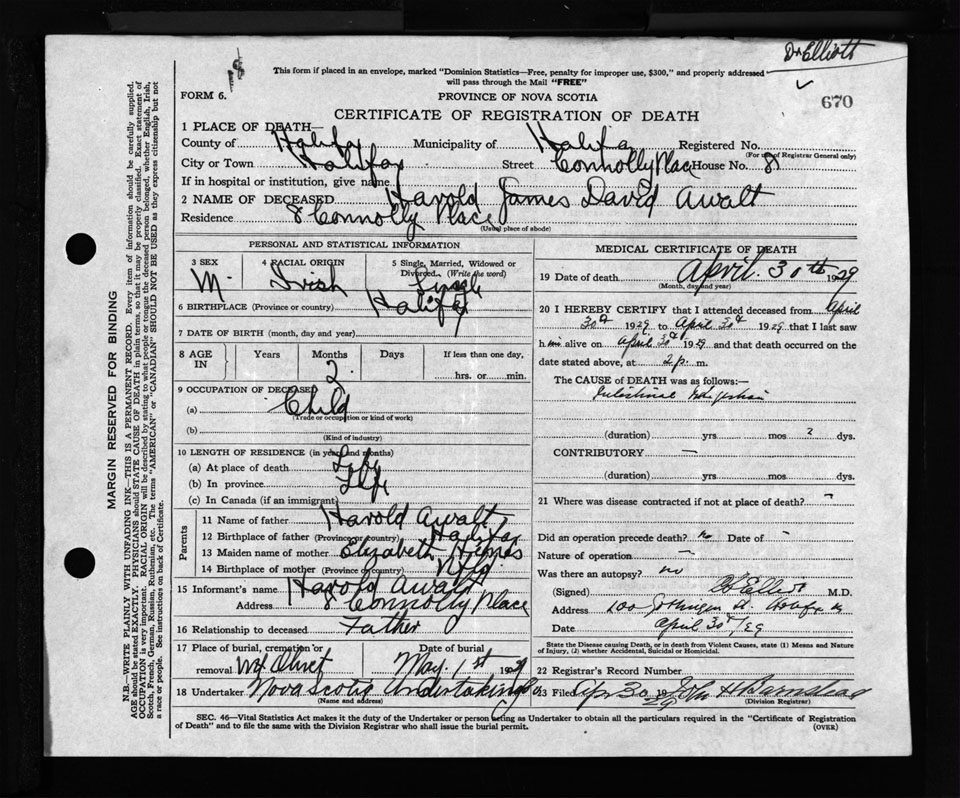 Dr Elliott
This form if placed in an envelope, marked "Dominion Statistics—Free, penalty for improper use, $300," and properly addressed
will pass through the Mail "FREE"
670
FORM 6.
PROVINCE OF NOVA SCOTIA
CERTIFICATE OF REGISTRATION OF DEATH
1 PLACE OF DEATH—
County of Halifax Municipality of Halifax Registered No.
(For use of Registrar General only)
City or Town Halifax Street Connolly Place House No. 8
If in hospital or institution, give name
2 NAME OF DECEASED Harold James David Awalt
Residence 8 Connolly Place
(Usual place of abode)
PERSONAL AND STATISTICAL INFORMATION
3 SEX 4 RACIAL ORIGIN 5 Single, Married, Widowed or
Divorced. (Write the word)
M. Irish Single
6 BIRTHPLACE (Province or country) Halifax
7 DATE OF BIRTH (month, day and year)
8 AGE IN Years Months Days If less than one day,
2 hrs. or min.
9 OCCUPATION OF DECEASED
(a) Child
(Trade or occupation or kind of work)
(b)
(Kind of industry)
10 LENGTH OF RESIDENCE (in years and months)
(a) At place of death Life
(b) In province Life
(c) In Canada (if an immigrant)
Parents
11 Name of father Harold Awalt
12 Birthplace of father (Province or country) Halifax
13 Maiden name of mother Elizabeth Holmes
14 Birthplace of mother (Province or country) Nfld.
15 Informant's name Harold Awalt
Address 8 Connolly Place
16 Relationship to deceased Father
17 Place of burial, cremation or Date of burial
removal Mt Olivet May. 1st 1929
18 Undertaker Nova Scotia Undertaking Co
(Name and address)
MEDICAL CERTIFICATE OF DEATH
19 Date of death April 30th 1929
(Month, day and year)
20 I HEREBY CERTIFY that I attended deceased from April
30th 1929 to April 30th 1929 that I last saw
h im alive on April 30th 1929 and that death occurred on the
date stated above, at 2 p. m.
The CAUSE OF DEATH was as follows:—
Intestinal
(duration) yrs mos 2 dys.
CONTRIBUTORY —
(duration) yrs mos dys.
21 Where was disease contracted if not at place of death? —
Did an operation precede death? no Date of -
Nature of operation —
Was there an autopsy? no
(Signed) Elliott M.D.
Address 100
Date April 30th/29
State the Disease causing Death, or in death from Violent Causes, state (1) Means and Nature
of Injury, (2) whether Accidental, Suicidal or Homicidal.
22 Registrar's Record Number
23 Filed Apr 30 1929 John H Barnstead
(Division Registrar)
SEC. 46—Vital Statistics Act makes it the duty of the Undertaker or person acting as Undertaker to obtain all the particulars required in the "Certificate of Registration
of Death" and to file the same with the Division Registrar who shall issue the burial permit.
(OVER)
MARGIN RESERVED FOR BINDING
N.B.—WRITE PLAINLY WITH UNFADING INK—THIS IS A PERMANENT RECORD. Every item of information should be carefully supplied.
AGE should be stated EXACTLY. PHYSICIANS should STATE CAUSE OF DEATH in plain terms, so that it may be properly classified. Exact statement of
OCCUPATION is very important. RACIAL ORIGIN will be described by stating to what people or tongue the deceased person belonged, whether English, Irish,
Scotch, French, German, Russian, Ruthenian, etc. The terms "AMERICAN" or "CANADIAN" SHOULD NOT BE USED as they express citizenship but not
a race or people. See instructions on back of Certificate.